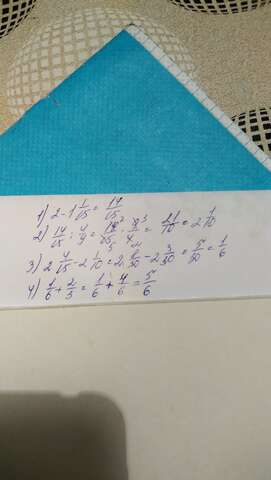 1) 2 - 1 1/15 = 14/15
2) 14/15 : 4/9 = 14/15 · 9/4 = 21/10 = 2 1/10
3) 2 4/15 - 2 1/10 = 2 8/30 - 2 3/30 = 5/30 = 1/6
4) 1/6 + 2/3 = 1/6 + 4/6 = 5/6